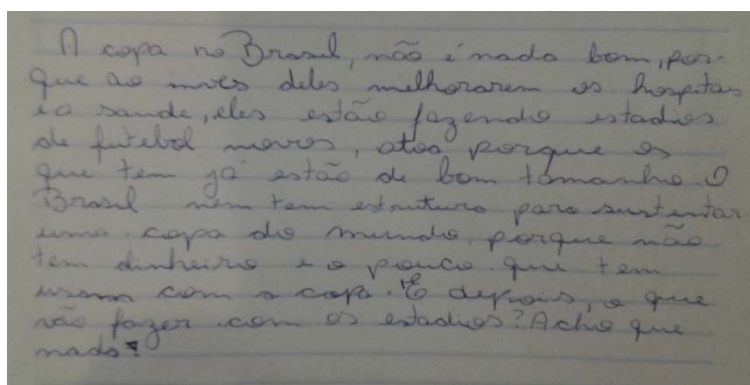 A copa no Brasil, não é nada bom, por-
que ao invés deles melhorarem os hospitais
e a saude, eles estão fazendo estadios
de futebol novos, atoa porque os
que tem já estão de bom tamanho. O
Brasil nem tem estrutura para sustentar
uma copa do mundo, porque não
tem dinheiro e o pouco que tem
usam com a copa. E depois, o que
vão fazer com os estadios? Acho que
nada!